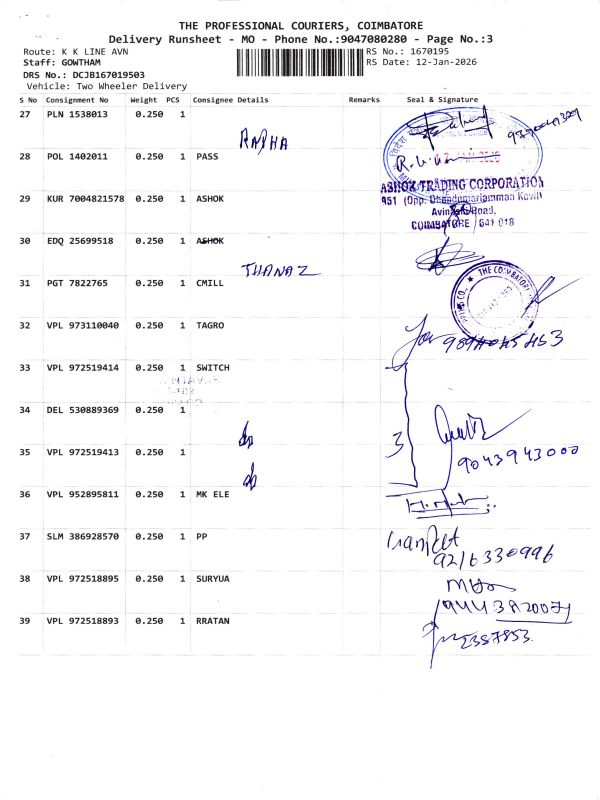 THE PROFESSIONAL COURIERS, COIMBATORE
Delivery Runsheet - MO - Phone No.:9047080280 - Page No.:3
Route: K K LINE AVN
RS No.: 1670195
Staff: GOWTHAM
RS Date: 12-Jan-2026
DRS No.: DCJB167019503
Vehicle: Two Wheeler Delivery
S No Consignment No Weight PCS Consignee Details Remarks Seal & Signature
27 PLN 1538013 0.250 1
RADHA
28 POL 1402011 0.250 1 PASS
29 KUR 7004821578 0.250 1 ASHOK
ASHOK TRADING CORPORATION
Road,
COIMBATORE 641 018
30 EDQ 25699518 0.250 1 ASHOK
THANAZ
31 PGT 7822765 0.250 1 CMILL
32 VPL 973110040 0.250 1 TAGRO
33 VPL 972519414 0.250 1 SWITCH
34 DEL 530889369 0.250 1
3
35 VPL 972519413 0.250 1
9043943000
36 VPL 952895811 0.250 1 MK ELE
37 SLM 386928570 0.250 1 PP
9216330996
38 VPL 972518895 0.250 1 SURYUA
39 VPL 972518893 0.250 1 RRATAN
2387853